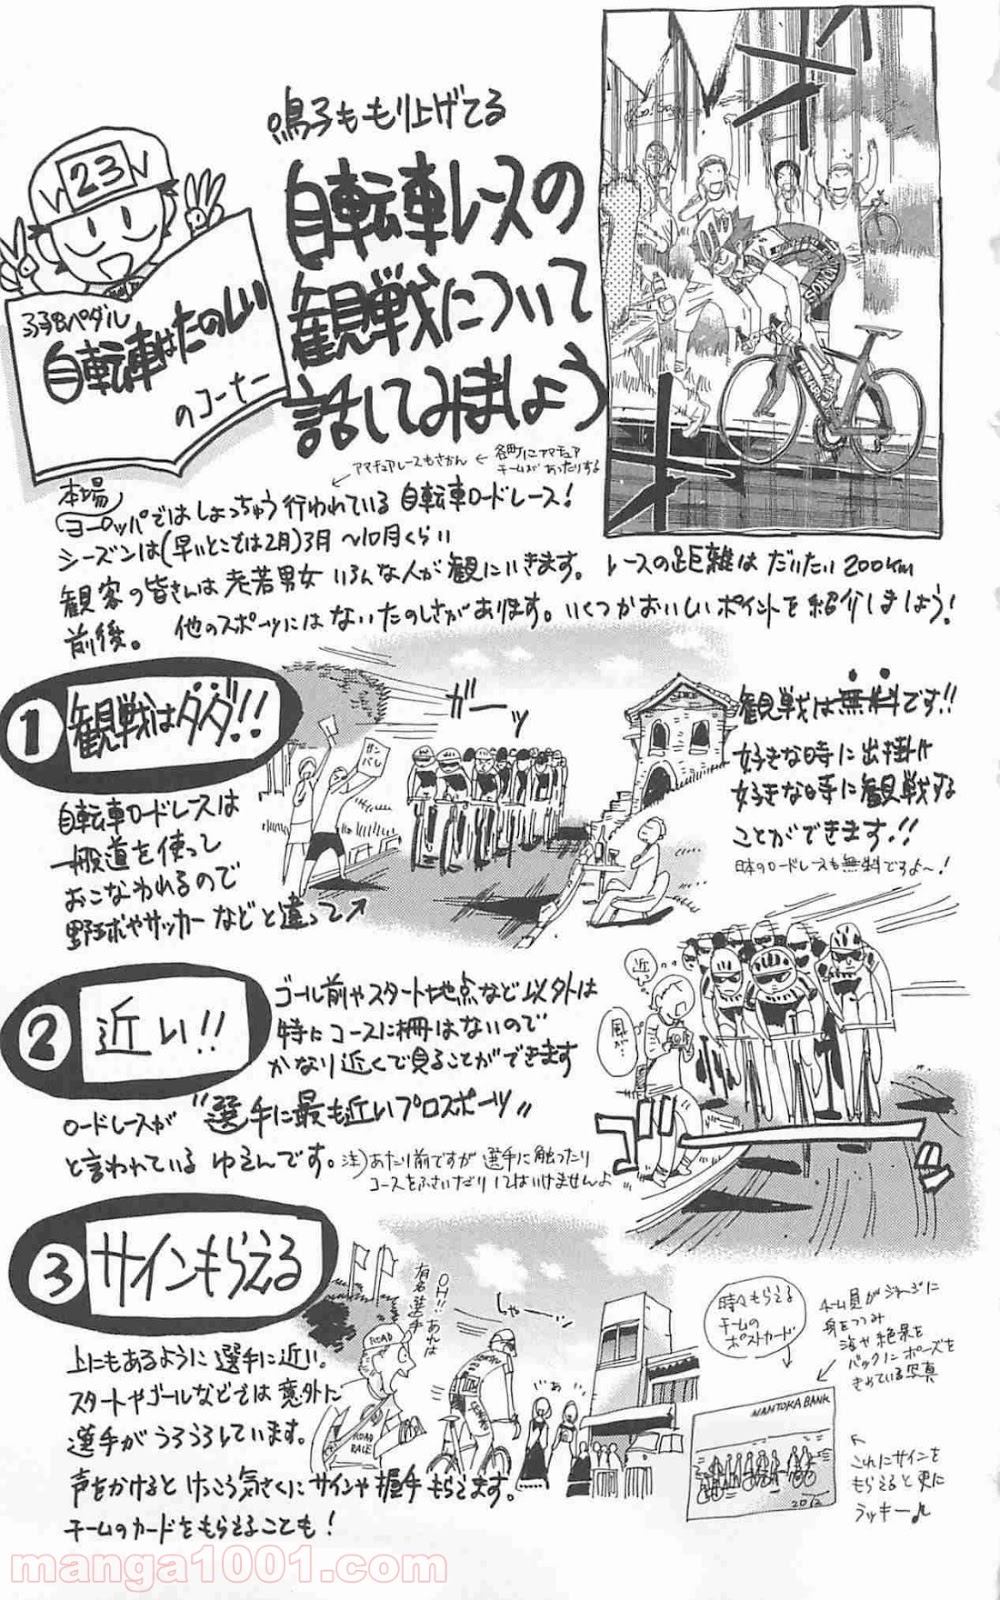 鳴子ももり上げてる
自転車レースの
観戦について
話してみましょう
23
弱虫ペダル
自転車はたのしい
のコーナー
アマチュアレースもさかん
各町にアマチュア
チームがあったりする
本場
ヨーロッパではしょっちゅう行われている自転車ロードレース!
シーズンは(早いとこでは2月)3月〜10月くらい
観客の皆さんは老若男女いろんな人が観にいきます。レースの距離はだいたい200km
前後。他のスポーツにはないたのしさがあります。いくつかおいしいポイントを紹介しましょう!
①観戦はタダ!!
自転車ロードレースは
一般道を使って
おこなわれるので
野球やサッカーなどと違って↗
ガーッ
ガンバレ
観戦は無料です!!
好きな時に出掛け
好きな時に観戦する
ことができます!!
日本のロードレースも無料ですよ〜!
②近い!!
ゴール前やスタート地点など以外は
特にコースに柵はないので
かなり近くで見ることができます
ロードレースが"選手に最も近いプロスポーツ"
と言われているゆえんです。
注)あたり前ですが選手に触ったり
コースをふさいだりしてはいけませんよ
近っ
風が…
③サインもらえる
上にもあるように選手に近い。
スタートやゴールなどでは意外に
選手がうろうろしています。
声をかけるとけっこう気さくにサインや握手もらえます。
チームのカードをもらえることも!
OH!!あれは
有名選手
しゃーっ
ROAD
ROAD
RACE
時々もらえる
チームの
ポストカード
チーム員がジャージに
身をつつみ
海や絶景を
バックにポーズを
きめている写真
NANTOKA BANK
2012
これにサインを
もらえると更に
ラッキー♪
manga1001.com